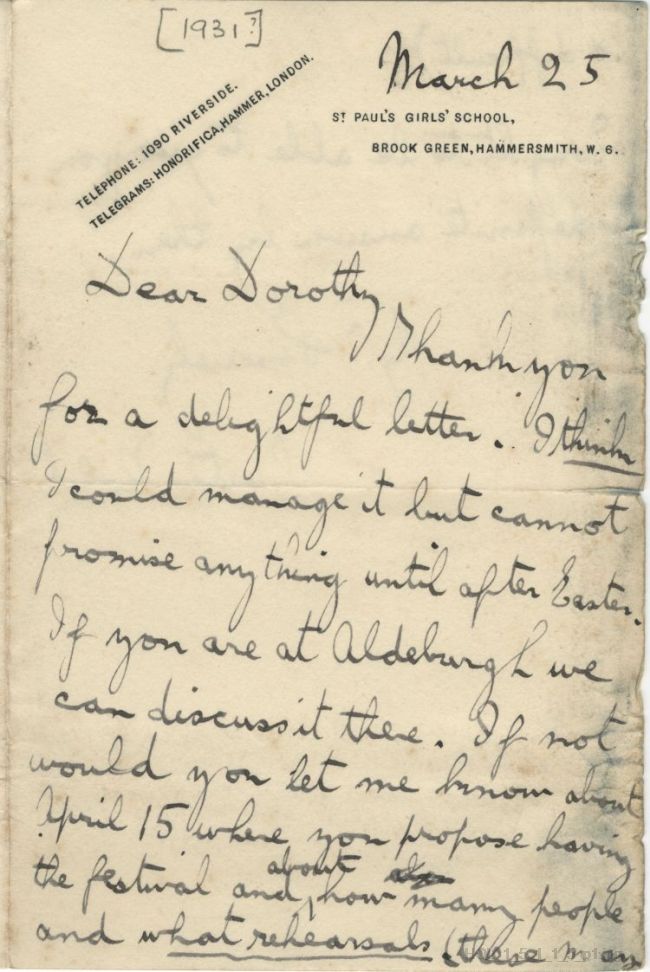 [1931?]
March 25
TELEPHONE: 1090 RIVERSIDE.
TELEGRAMS: HONORIFICA, HAMMER, LONDON.
ST PAUL'S GIRLS' SCHOOL,
BROOK GREEN, HAMMERSMITH, W. 6.
Dear Dorothy
Thank you
for a delightful letter. I think
I could manage it but cannot
promise anything until after Easter.
If you are at Aldeburgh we
can discuss it there. If not
would you let me know about
April 15 where you propose having
the festival and about how many people
and what rehearsals (these may